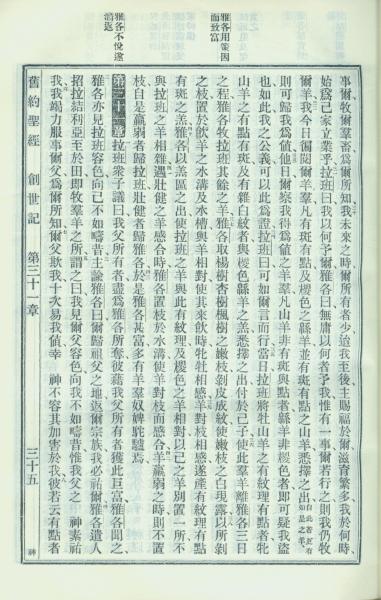 事爾牧爾羣畜爲爾所知我未來之時爾所有者少迨我至後主賜福於爾滋育繁多我於何時
始爲己家立業乎拉班曰我以何予爾雅各曰無庸以何者予我惟有一事爾若行之則我仍牧
爾羊我今日徧閱爾羊羣凡有斑有點及椶色之綿羊並有斑有點之山羊悉擇之出自此若更有如是之羊
則可歸我爲値他日爾察我得爲値之羊羣凡山羊非有斑與點者綿羊非椶色者即可疑我盜
也如此我之公義可以此爲證拉班曰可如爾言而行當日拉班將牡山羊之有紋理有點者牝
山羊之有點有斑及有雜白紋者與椶色綿羊之羔悉擇之出付於己子使此羣羊離雅各三日
之程雅各牧拉班其餘之羊雅各取楊樹杏樹楓樹之嫩枝剝皮成紋使嫩枝之白現露以所剝
之枝置於飲羊之水溝及水槽與羊相對使其來飲時牝牡相感羊對枝相感遂產有紋理有點
有斑之羔雅各以羔區之出使拉班之羊與此有紋理及椶色之羊相對以己之羊別置一所不
與拉班之羊相雜遇壯健之羊感合時雅各置枝於水溝使羊對枝而感合羊羸弱之時則不置
枝自是羸弱者歸拉班壯健者歸雅各於是雅各甚富多有羊羣奴婢駝驢焉
第三十一章拉班衆子議曰我父所有者盡爲雅各所奪彼藉我父所有者獲此巨富雅各聞之
雅各亦見拉班容色向己不如疇昔主諭雅各曰爾歸祖父之地返爾宗族我必祐爾雅各遣人
招拉結利亞至於田即牧羣羊之所謂之曰我見爾父容色向我不如疇昔惟我父之 神素祐
我我竭力服事爾父爲爾所知爾父欺我十次易我値幸 神不容其加害於我彼若云有點者
雅各用策因
而致富
雅各不悅遂
潛返
舊約聖經 創世記 第三十一章 三十五 神